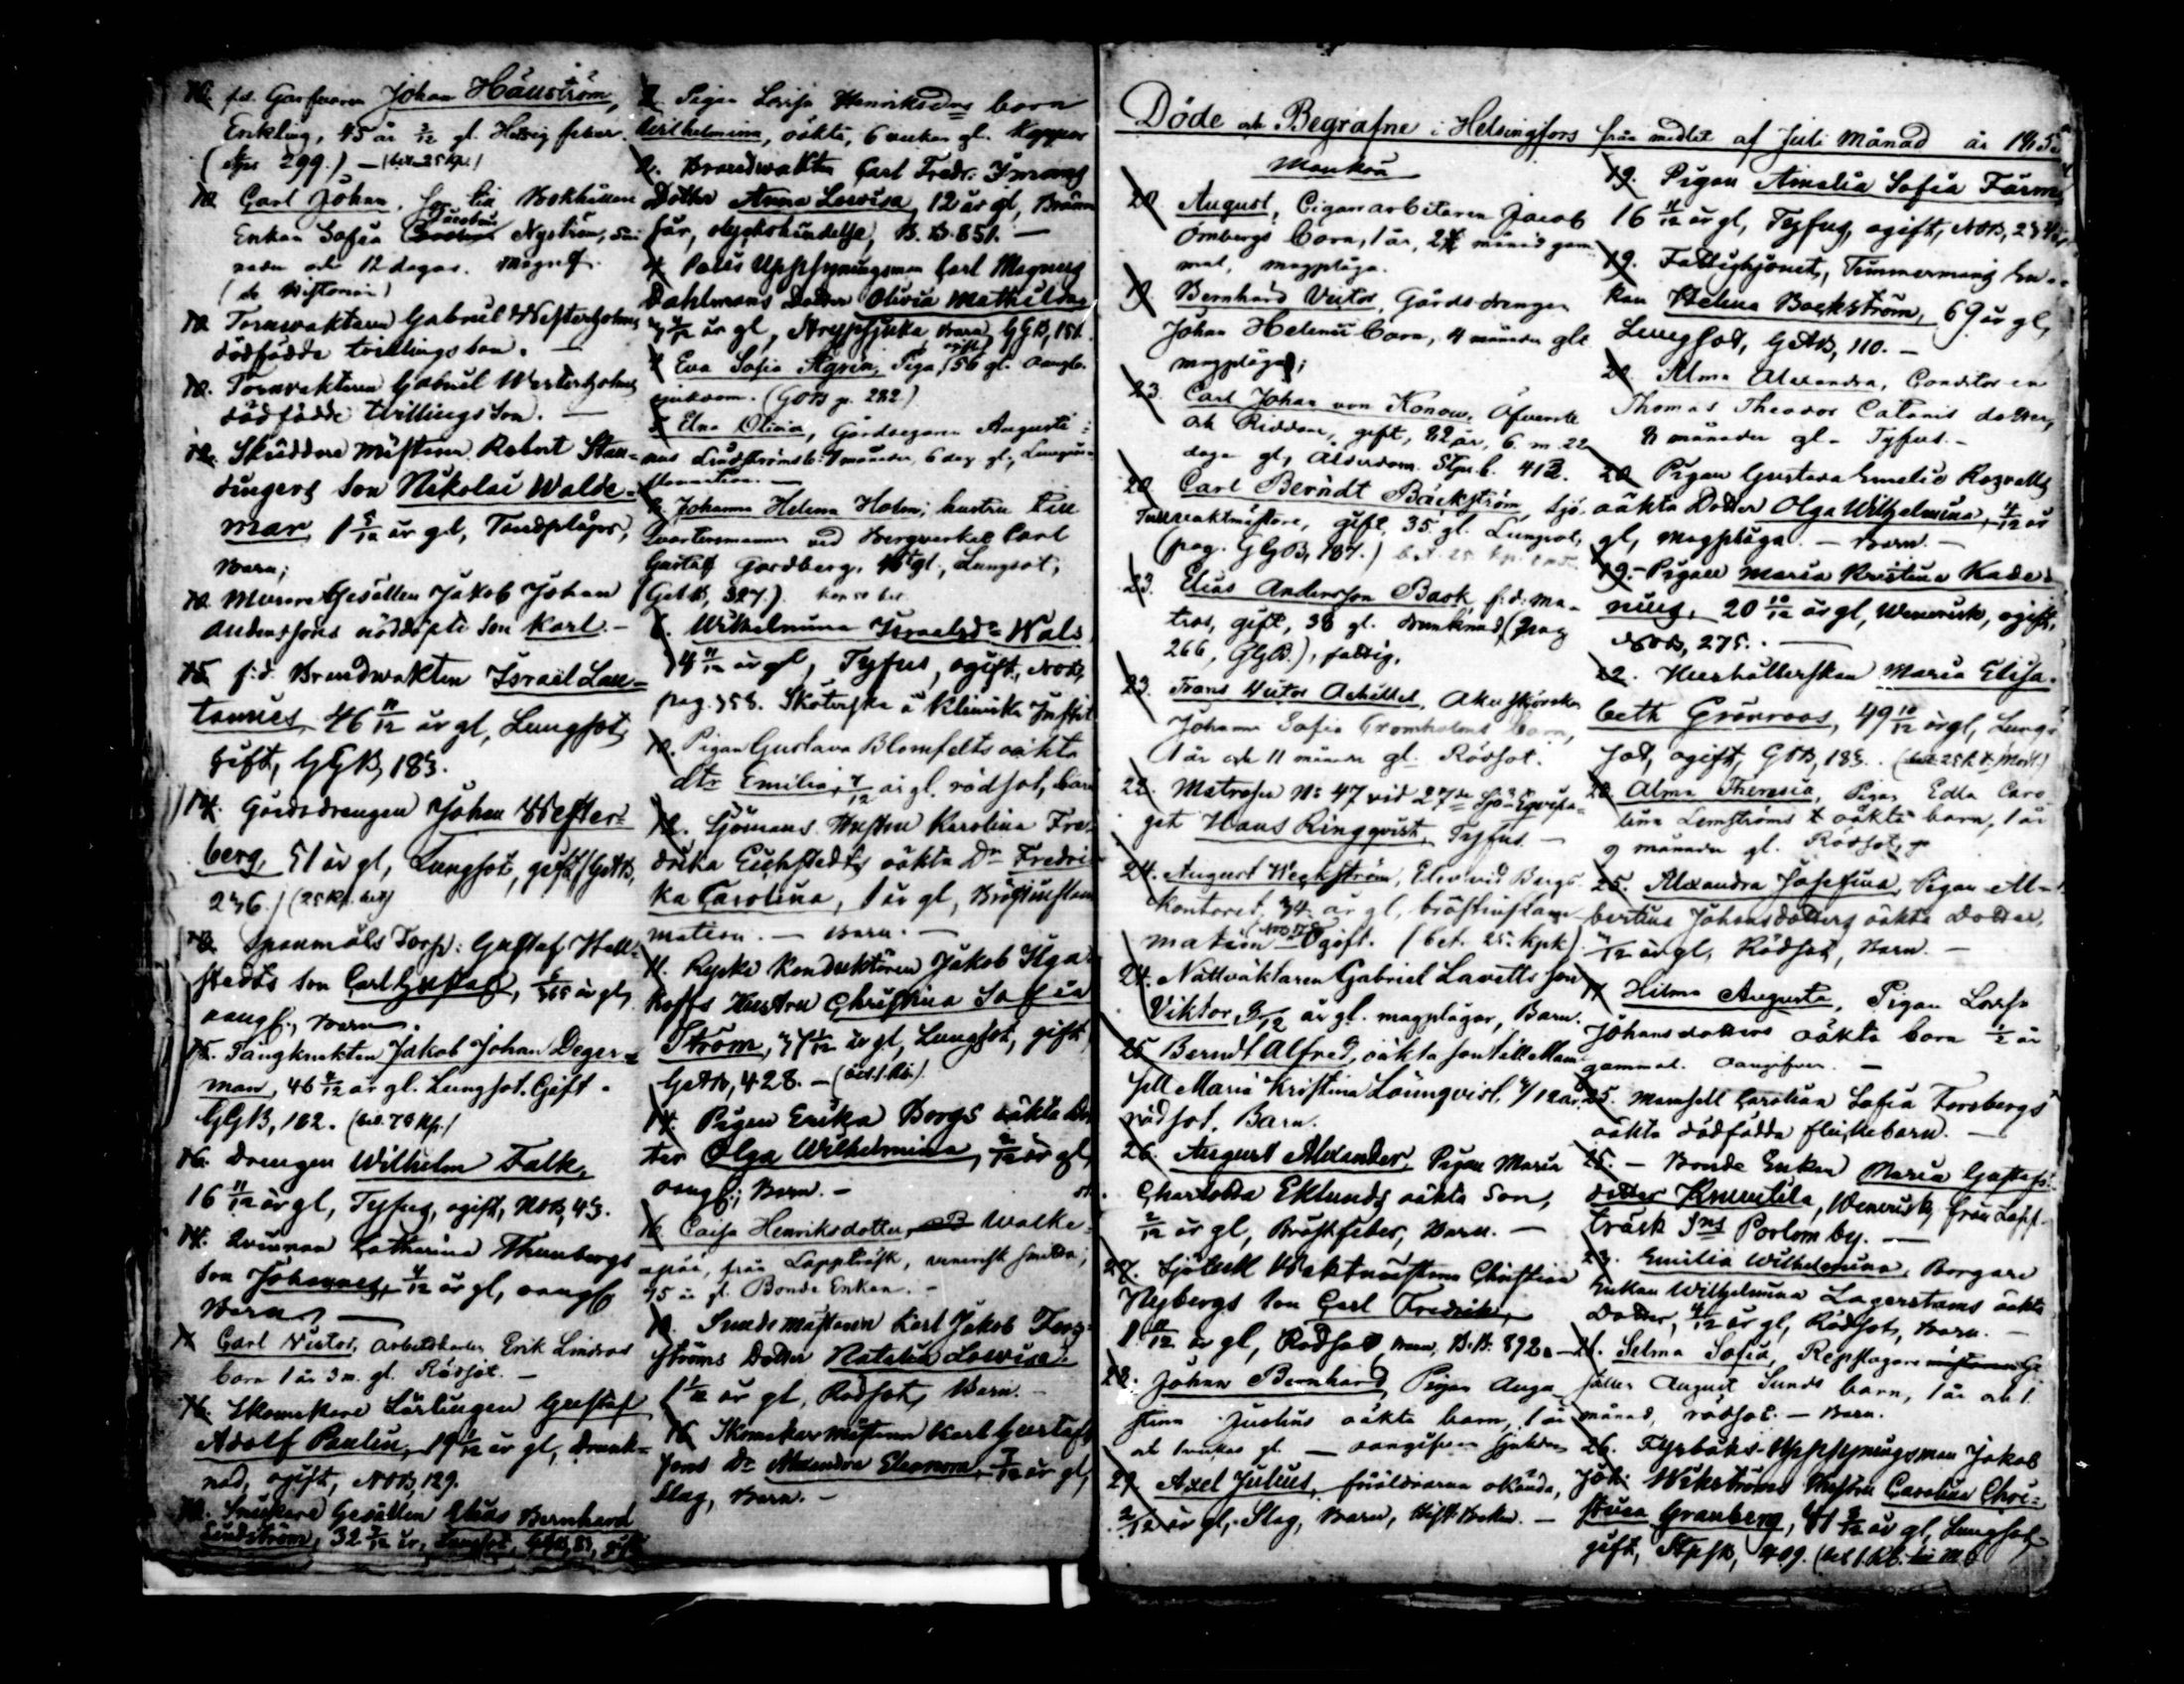 f.d. Garfvaren Johan Häuström,
Enkling, 45 år 3/12 gl. Hetsig feber.
(Stps 299.) — (bet. 25 kp.)
Carl Johan, Son till Bokhållare
Enkan Sofia Nyström,
och 12 dagar.
Tornwaktaren Gabriel Westerholms
dödfödde tvillingson. —
Tornwaktaren Gabriel Westerholms
dödfödde tvillingsson. —
Skräddare Mästaren Robert Stau-
dingers Son Nikolai Walde-
mar, 1 5/12 år gl, Tandplågor,
Barn;
Murare Gesällen Jakob Johan
Anderssons nöddöpte Son Karl. —
15. f.d. Brandwakten Israel Lau-
46 11/12 år gl, Lungsot,
gift, GGB, 183.
14. Gårdsdrengen Johan Wester-
berg, 51 år gl, Lungsot, gift (GGB,
236.) (25 kp. bet)
Gustaf Hall-
stedts Son Carl Gustaf, 6/365 år gl,
oangf., Barn.
15. Fångknekten Jakob Johan Deger-
man, 46 4/12 år gl. Lungsot. Gift.
GGB, 102. (bet. 75 kp.)
16. Drengen Wilhelm Falk,
16 11/12 år gl, Tyfus, ogift, NOB, 43.
14. Qvinnan Catharina Thunbergs
Son Johannes, 4/12 år gl, oangf
Barn. —
Carl Victor, Arbetskarlen Erik Lindroos
barn 1 år 3 m. gl. Rödsot. —
16. Skomakare Lärlingen Gustaf
Adolf Paulin, 19 år gl, Drunk-
nad, ogift, NOB, 129.
Snickare Gesällen Elias Bernhard
Lindström, 32 år, Lungsot, gift
Pigan Lovisa Henriksdrs barn
Wilhelmina, oäkta, 6 veckor gl. Koppor
Brandwakten Carl Fredr.
Dotter Anna Lovisa, 12 år gl, Bränn-
sår, olyckshändelse, B.B. 851. —
Polis Uppsyningsman Carl Magnus
Dahlmans Dotter Olivia Mathilda
år gl, Strypsjuka, Barn, GGB, 151.
Eva Sofia Agrén, Piga, ogift, 56 gl.
sjukdom. (GOB p. 222)
Elna Olivia, Gårdsegaren Augusti-
nus Lindströms b. 4 månader, 6 dag gl, Lungin-
flammation. —
Johanna Helena Holm, hustru till
Qvartersmannen vid Bergverket Carl
Gustaf Gardberg, 46 gl., Lungsot,
(GGB, 327.)
Wilhelmina Israelsdr Wals
11/12 år gl, Tyfus, ogift, NOB,
pag. 358. Sköterska å Kliniska Instit
10. Pigan Gustava Blomfelts oäkta
dtr Emilia, 4/12 år gl. rödsot, barn
12. Sjömans Hustrun Karolina Fre-
drika Eichstedts oäkta Dr Fredri-
ka Carolina, 1 år gl, Bröstinflam
mation. — Barn. —
11. Ryske Konduktören Jakob Ilga-
koffs Hustru Christina Sofia
Ström, år gl, Lungsot, gift
GGB, 428. — (bet. 1 Rb.)
14. Pigan Erika Borgs oäkta Dot
ter Olga Wilhelmina, 2/12 år gl,
oangf; Barn. —
16. Caisa Henriksdotter, Walke-
apää, från Lappträsk, venerisk smitta,
45 år gl. Bonde Enkan. —
Karl Jakob
ströms Dotter Natalia Lovisa,
år gl, Rödsot, Barn. —
16. Skomakar Mästaren Karl Gustaf
sons Dr Alexandra Eleonora, 7/12 år gl,
Slag, Barn. —
Döde och Begrafne i Helsingfors från medlet af Juli Månad år 185
Mankön
20. August, Cigarrarbetaren Jacob
Örnbergs barn, 1 år, månad gam
mal, magplåga.
19. Bernhard Victor, Gårdsdrengen
Johan Helenii barn, 4 månader gl
magplågor;
23. Carl Johan von Konow, Öfverste
och Riddare, gift, 82 år, 6 m. 22
daga gl, Ålderdom. Stps b. 412.
20. Carl Berndt Bäckström, Sjö-
Tullvaktmästare, gift, 35 gl. Lungsot,
(pag. GGB, 187.)
23. Elias Andersson Bask, f.d. Ma-
tros, gift, 38 gl. Drunknad (pag
266, GGB.), fattig.
23. Frans Victor Achilles, Åkerskörskan
Johanna Sofia Cromholms barn,
1 år och 11 månader gl. Rödsot.
22. Matrosen No 47 vid 27de Sjö-Equipa-
get Hans Ringqvist, Tyfus. —
24. August Weckström, Elev vid Bergs
Kontoret, 34 år gl, bröstinflam
mation, Ogift. (bet. 25 kpk)
24. Nattväktaren Gabriel Lavetts son
Viktor, år gl. magplågor, Barn.
25. Berndt Alfred, oäkta son till Mam
sell Maria Kristina Lönnqvist, år,
rödsot. Barn.
26. August Alexander, Pigan Maria
Charlotta Eklunds oäkta Son,
2/12 år gl, Bröstfeber, Barn. —
27. Sjötull Waktmästaren Christian
Nybergs Son Carl Fredrik,
år gl, Rödsot, Barn, B.B. 892. —
28. Johan Bernhard, Pigan Augu
stina Justius oäkta barn, 1 år
och 1 veckas gl. — oangifven sjukdom
29. Axel Julius, föräldrarna okända,
2/12 år gl, Slag, Barn, Hist. Boken. —
19. Pigan Amalia Sofia Färm,
16 11/12 år gl, Tyfus, ogift, NOB,
19. Fattighjonet, Timmermans En-
kan Helena Backström, 69 år gl,
Lungsot, GGB, 110. —
20. Alma Alexandra, Conditoren
Thomas Theodor Catanis dotter,
8 månader gl. — Tyfus. —
20. Pigan Gustava Emelie
oäkta Dotter Olga Wilhelmina, 4/12 år
gl, Magplåga. — Barn. —
19. — Pigan Maria Kristina
20 10/12 år gl, Venerisk, ogift,
NOB, 275. —
22. Hushållerskan Maria Elisa-
beth Grönroos, 49 10/12 år gl, Lung-
sot, ogift, GOB, 183. (bet. 25 k.)
20. Alma Theresia, Pigan Edla Caro
lina Lemströms oäkta barn, 1 år
9 månader gl. Rödsot,
25. Alexandra Josefina, Pigan Al-
bertina Johansdotters oäkta Dotter,
/12 år gl, Rödsot, Barn. —
Hilma Augusta, Pigan Lovisa
Johansdotters oäkta barn 1/2 år
gammal. oangifven. —
25. Mamsell Carolina Sofia Forsbergs
oäkta dödfödda flickebarn. —
25. — Bonde Enkan Maria Gustafs-
dotter Knuutila, Venerisk, från Lapp-
träsk Sns Porlom by. —
23. Emilia Wilhelmina, Borgare
Enkan Wilhelmina Lagerstams oäkta
Dotter, 4/12 år gl, Rödsot, Barn. —
21. Selma Sofia, Repslagare Ge-
sällen August Sunds barn, 1 år och 1
månad, rödsot. — Barn.
26. Fyrbåks-Uppsyningsman Jakob
Joh. Wikströms Hustru Carolina Chri-
stina Granberg, 41 år gl, Lungsot
gift, Stpsb, 409. (bet 1 Rb.